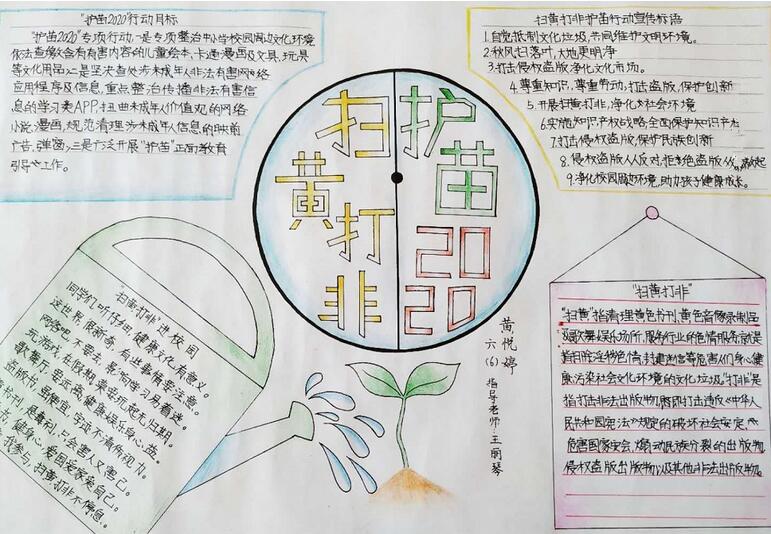 "护苗2020"行动目标
"护苗2020"专项行动,一是专项整治中小学校园周边文化环境
依法查缴含有有害内容的儿童绘本、卡通漫画及文具、玩具
等文化用品;二是坚决查处涉未成年人非法有害网络
应用程序及信息,重点整治传播非法有害信
息的学习类APP,扭曲未成年人价值观的网络
小说、漫画,规范清理涉未成年人信息的映前
广告、弹窗;三是广泛开展"护苗"正面教育
引导工作。
扫黄打非
护苗2020
扫黄打非护苗行动宣传标语
1.自觉抵制文化垃圾,共同维护文明环境。
2.秋风扫落叶,大地更明净
3.打击侵权盗版,净化文化市场。
4.尊重知识,尊重劳动,打击盗版,保护创新
5.开展扫黄打非,净化社会环境
6.实施知识产权战略,全面保护知识产权
7.打击侵权盗版,保护民族创新
8.侵权盗版人人反对,拒绝盗版从我做起
9.净化校园周边环境,助力孩子健康成长。
"扫黄打非"进校园
同学们,听仔细,健康文化有意义。
这世界,很新奇,有些事情要注意。
网吧,不要去,影响学习易着迷。
玩游戏,在假期,莫等玩起无归期。
歌舞厅,要远离,健康娱乐身心益。
盗版书,虽便宜,字迹不清伤视力。
书刊,是毒利,只会害人又害己。
健身心,爱国爱家爱自己。
我参与,扫黄打非不停息。
黄悦婷
六(6)
指导老师:王丽琴
"扫黄打非"
"扫黄"指清理黄色书刊、黄色音像录制品
及歌舞娱乐场所,服务行业的色情服务,就是
指扫除淫秽色情、封建迷信等危害人们身心健
康污染社会文化环境的文化垃圾。"打非"是
指打击非法出版物,即打击违反《中华人
民共和国宪法》规定的破坏社会安定、
危害国家安全、煽动民族分裂的出版物,
侵权盗版出版物以及其他非法出版物。